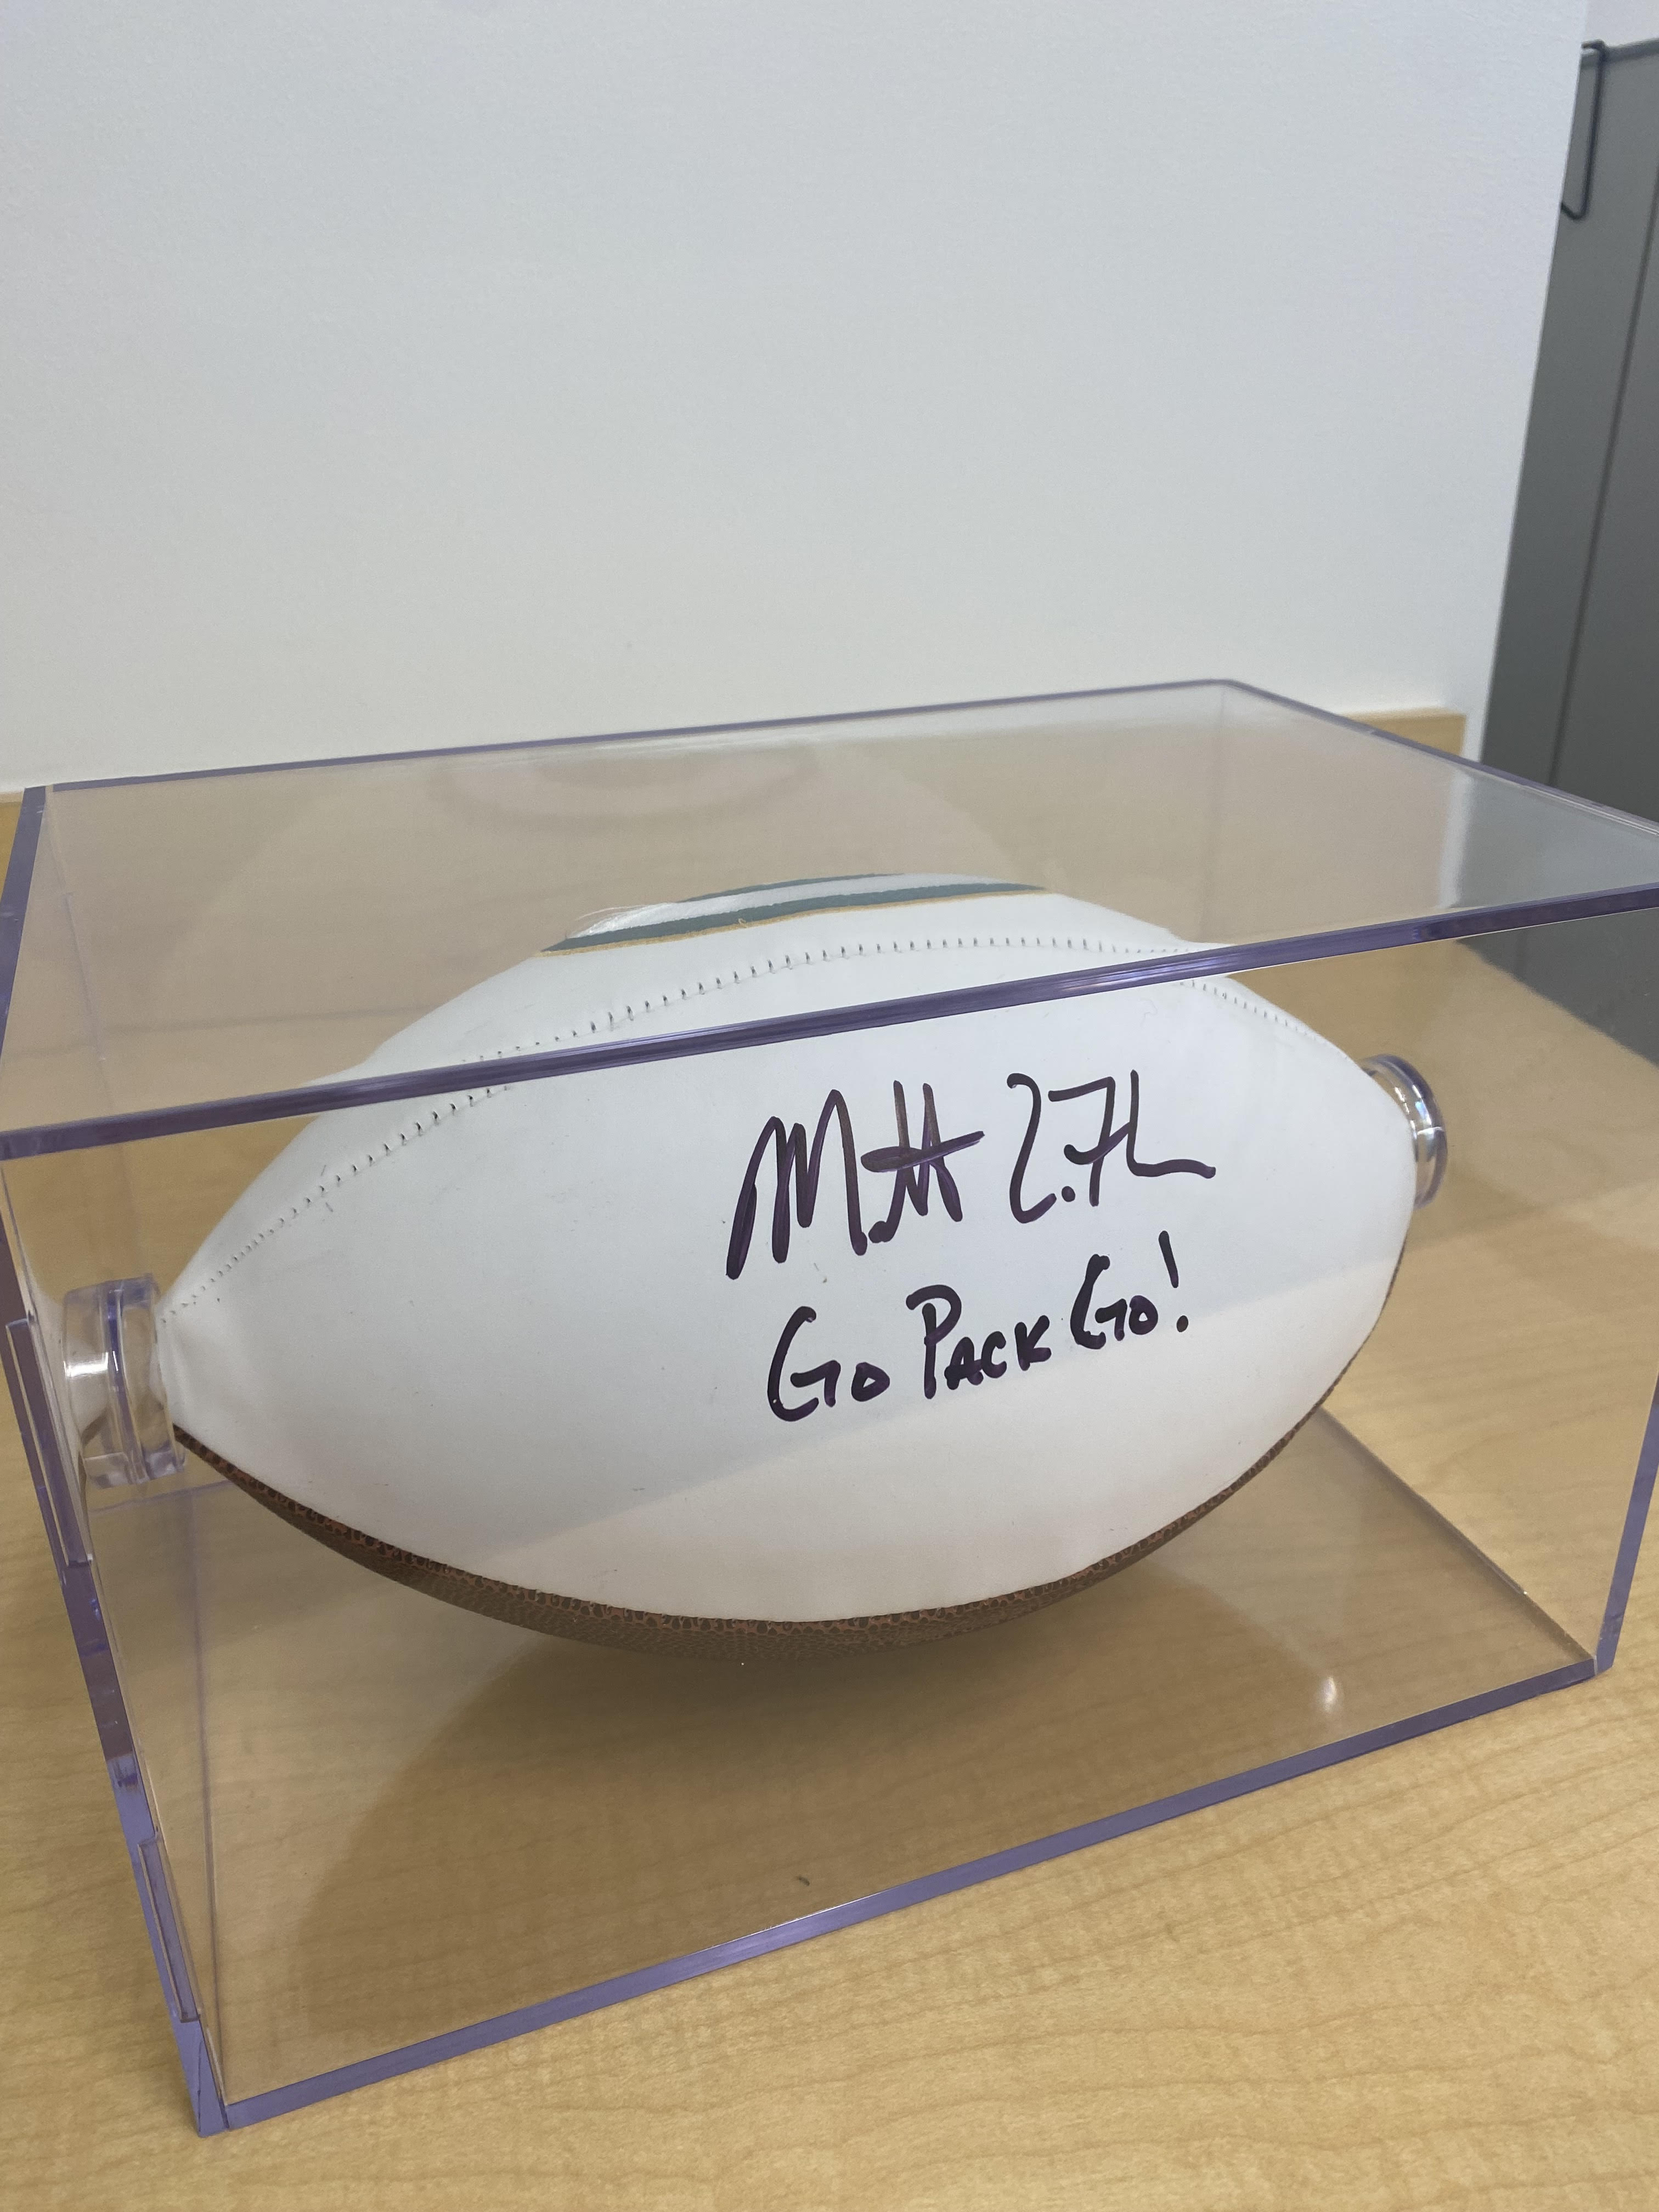 Matt
Go Pack Go!